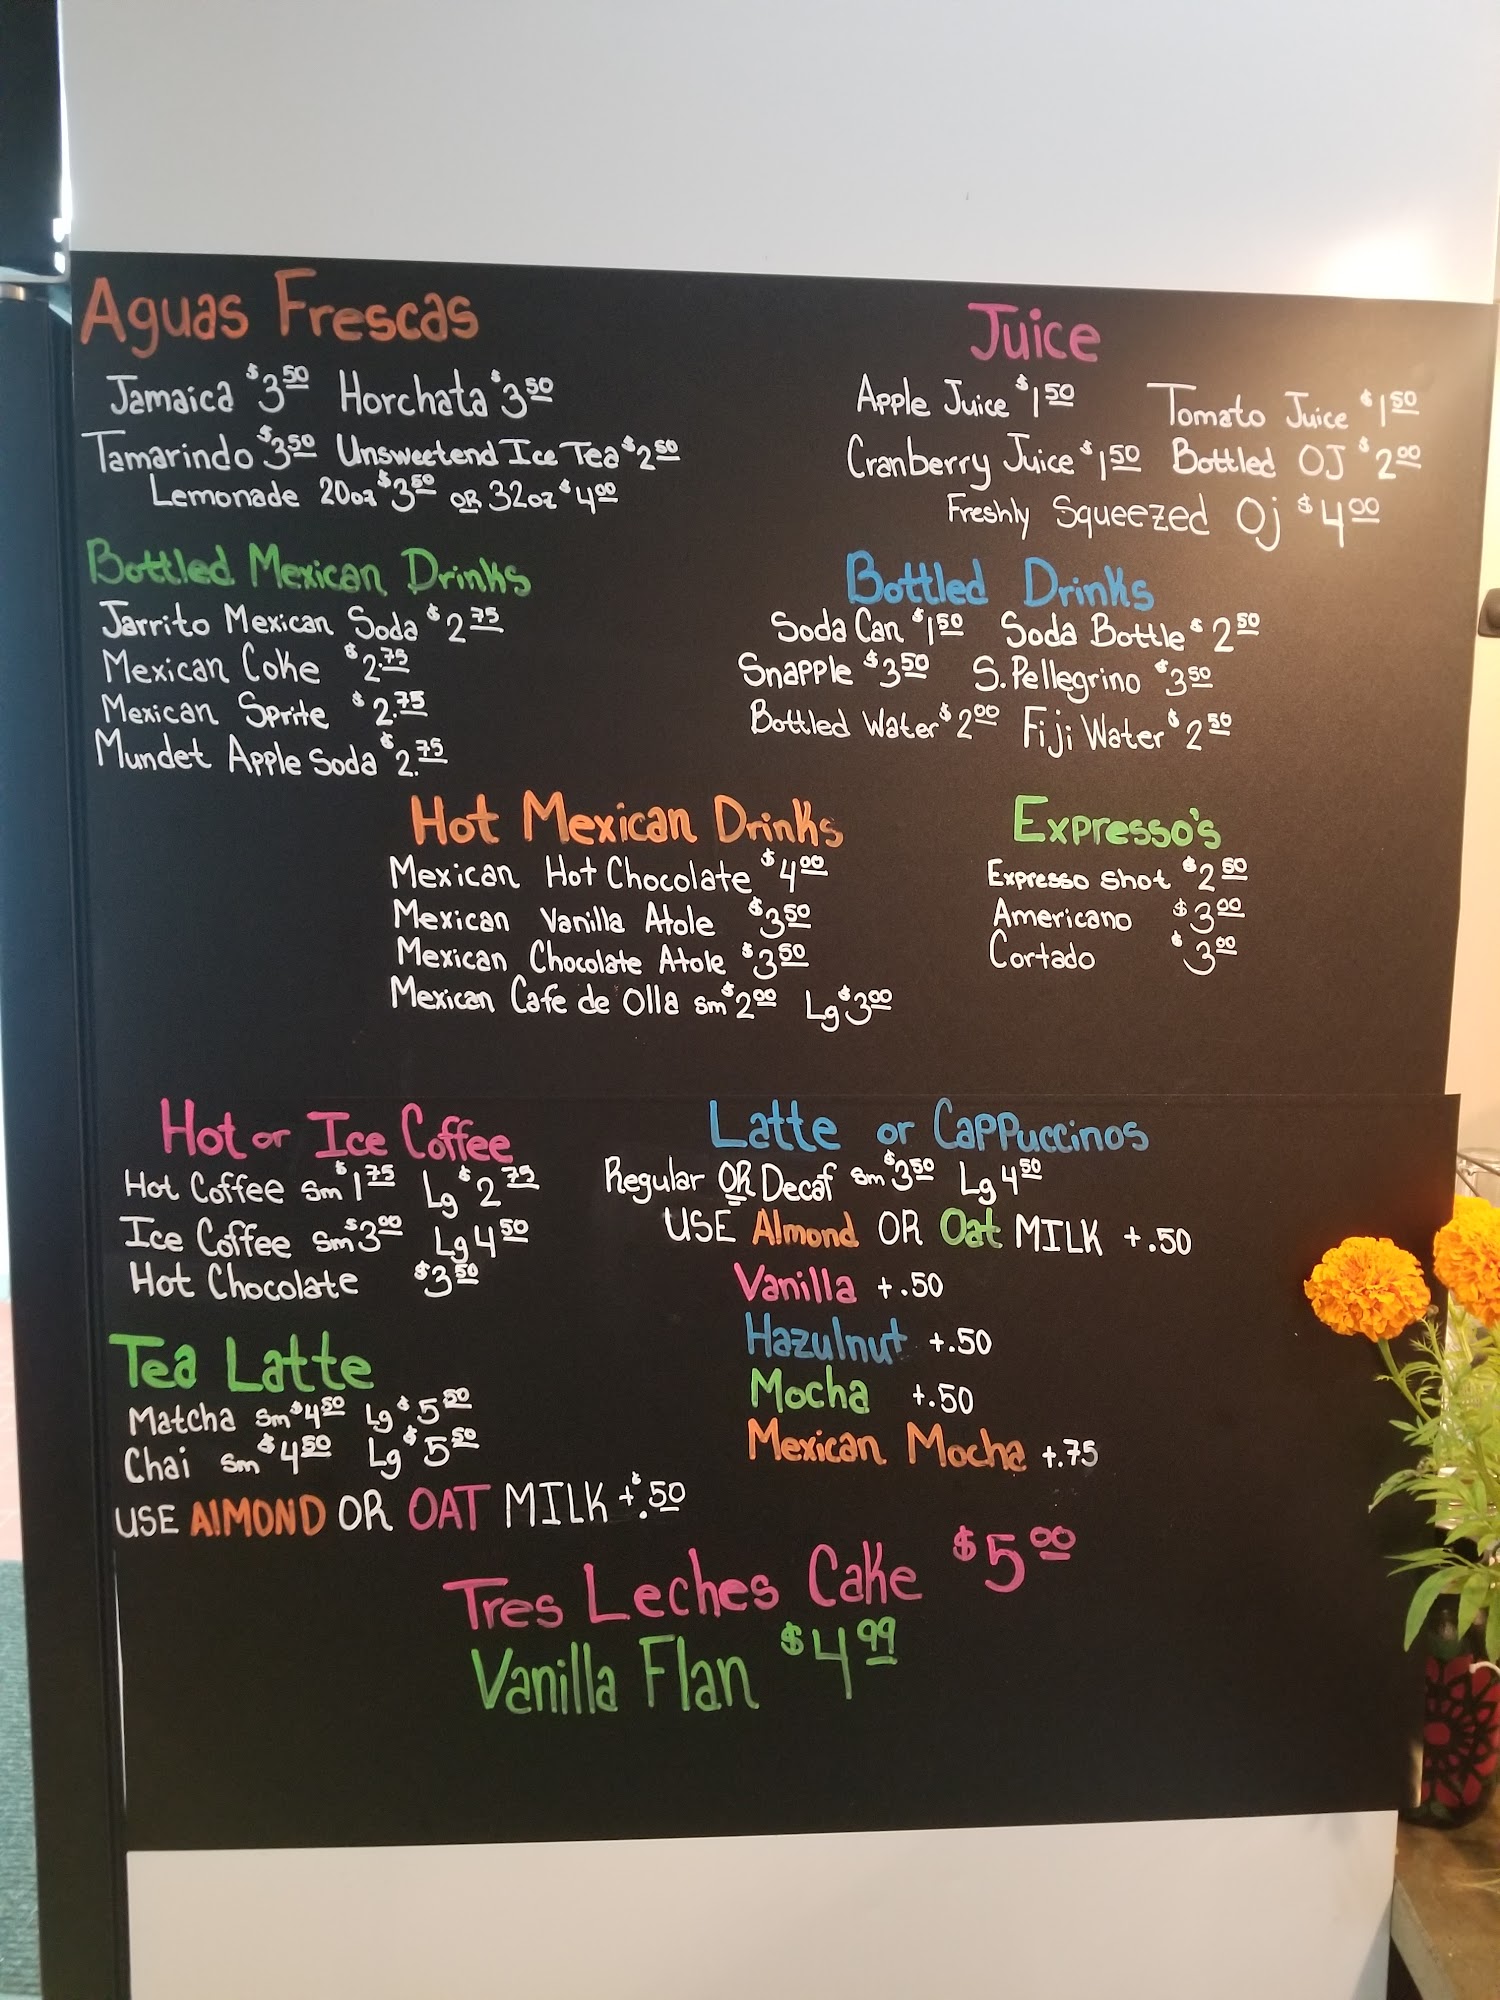 Aguas Frescas
Jamaica $3.50 Horchata $3.50
Tamarindo $3.50 Unsweetend Ice Tea $2.50
Lemonade 20oz $3.50 OR 32oz $4.00
Juice
Apple Juice $1.50 Tomato Juice $1.50
Cranberry Juice $1.50 Bottled OJ $2.00
Freshly Squeezed Oj $4.00
Bottled Mexican Drinks
Jarrito Mexican Soda $2.75
Mexican Coke $2.75
Mexican Sprite $2.75
Mundet Apple Soda $2.75
Bottled Drinks
Soda Can $1.50 Soda Bottle $2.50
Snapple $3.50 S.Pellegrino $3.50
Bottled Water $2.00 Fiji Water $2.50
Hot Mexican Drinks
Mexican Hot Chocolate $4.00
Mexican Vanilla Atole $3.50
Mexican Chocolate Atole $3.50
Mexican Cafe de Olla sm $2.00 Lg $3.00
Expresso's
Expresso shot $2.50
Americano $3.00
Cortado $3.00
Hot or Ice Coffee
Hot Coffee sm $1.75 Lg $2.75
Ice Coffee sm $3.00 Lg 4.50
Hot Chocolate $3.50
Tea Latte
Matcha sm $4.50 Lg $5.50
Chai sm $4.50 Lg $5.50
USE AlMOND OR OAT MILK +$.50
Latte or Cappuccinos
Regular OR Decaf sm $3.50 Lg 4.50
USE Almond OR Oat MILK +.50
Vanilla +.50
Hazulnut +.50
Mocha +.50
Mexican Mocha +.75
Tres Leches Cake $5.00
Vanilla Flan $4.99